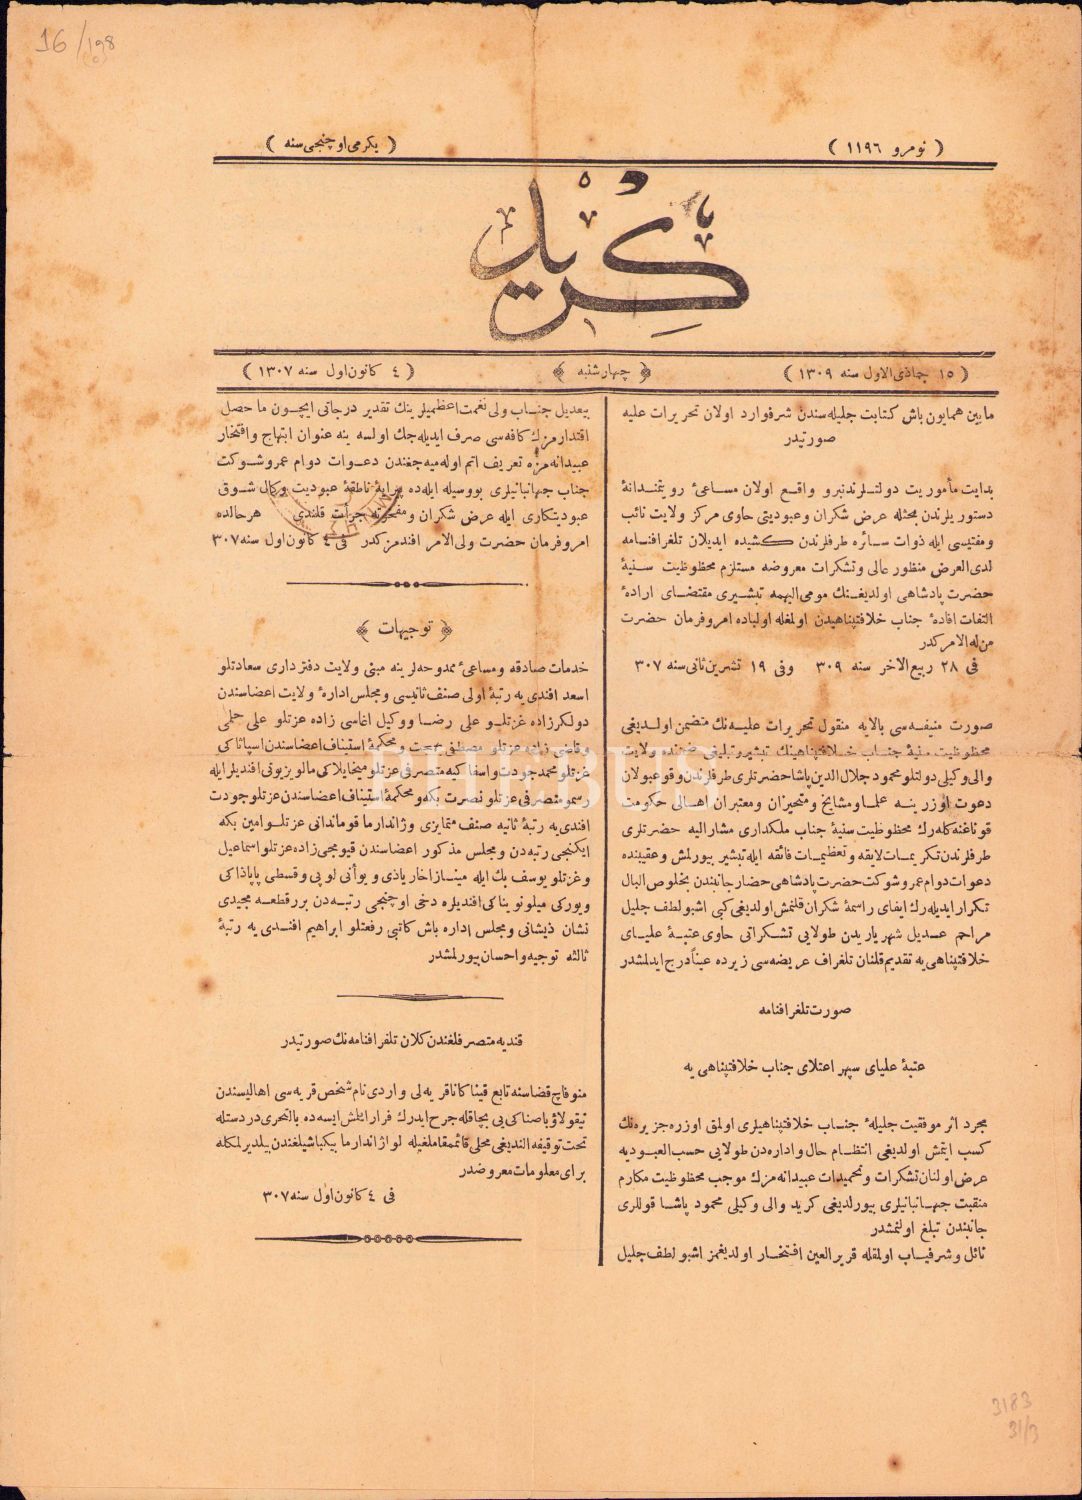 16/198
(0)
﴿ نومرو ١١٩٦ ﴾
﴿ يكرمى اوچنجى سنه ﴾
كريد
﴿ ١٥ جماذى الاول سنه ١٣٠٩ ﴾
﴿ چهارشنبه ﴾
﴿ ٤ كانون اول سنه ١٣٠٧ ﴾
مابين همايون باش كتابت جليله سندن شرفوارد اولان تحريرات عليه
صورتيدر
بدايت مأموريت دولتلرندنبرو واقع اولان مساعئ رويتمندانۀ
دستوريلرندن بحثله عرض شكران وعبوديتى حاوى مركز ولايت نائب
ومفتيسى ايله ذوات سائره طرفلرندن كشيده ايديلان تلغرافنامه
لدى العرض منظور عالى وتشكرات معروضه مستلزم محظوظيت سنيۀ
حضرت پادشاهى اولديغنك مومى اليهمه تبشيرى مقتضاى ارادۀ
التفات افادۀ جناب خلافتپناهيدن اولمغله اولبابده امروفرمان حضرت
من له الامركدر
فى ٢٨ ربيع الاخر سنه ٣٠٩ وفى ١٩ تشرين ثانى سنه ٣٠٧
صورت منيفه سى بالايه منقول تحريرات عليه نك متضمن اولديغى
محظوظيت سنيۀ جناب خلافتپناهينك تبشير وتبليغى ضمننده ولايت
والى وكيلى دولتلو محمود جلال الدين پاشا حضرتلرى طرفلرندن وقوعبولان
دعوت اوزرينه علما ومشايخ ومتحيزان ومعتبران اهالى حكومت
قوناغنه كله رك محظوظيت سنيۀ جناب ملكدارى مشاراليه حضرتلرى
طرفلرندن تكريمات لايقه وتعظيمات فائقه ايله تبشير بيورلمش وعقيبنده
دعوات دوام عمر وشوكت حضرت پادشاهى حضار جانبندن بخلوص البال
تكرار ايديله رك ايفاى راسمۀ شكران قلنمش اولديغى كبى اشبو لطف جليل
مراحم عديل شهرياريدن طولايى تشكراتى حاوى عتبۀ علياى
خلافتپناهى يه تقديم قلنان تلغراف عريضه سى زيرده عيناً درج ايدلمشدر
صورت تلغرافنامه
عتبۀ علياى سپهر اعتلاى جناب خلافتپناهى يه
مجرد اثر موفقيت جليلۀ جناب خلافتپناهيلرى اولمق اوزره جزيره نك
كسب ايتمش اولديغى انتظام حال واداره دن طولايى حسب العبوديه
عرض اولنان تشكرات وتحميدات عبيدانه مزك موجب محظوظيت مكارم
منقبت جهانبانيلرى بيورلديغى كريد والى وكيلى محمود پاشا قوللرى
جانبندن تبلغ اولنمشدر
نائل وشرفياب اولمقله قرير العين افتخار اولديغمز اشبو لطف جليل
بيعديل جناب ولى نغمت اعظميلرينك تقدير درجاتى ايچون ماحصل
اقتدارمزك كافه سى صرف ايديله جك اولسه ينه عنوان ابتهاج وافتخار
عبيدانه مزه تعريف اتم اوله ميه جغندن دعوات دوام عمر وشوكت
جناب جهانبانيلرى بووسيله ايله ده پيرايۀ ناطقۀ عبوديت وكال شوق
عبوديتكارى ايله عرض شكران ومفخرته جرأت قلندى هرحالده
امر وفرمان حضرت ولى الامر افندمزكدر فى ٤ كانون اول سنه ٣٠٧
﴿ توجيهات ﴾
خدمات صادقه ومساعئ ممدوحه لرينه مبنى ولايت دفتردارى سعادتلو
اسعد افندى يه رتبۀ اولى صنف ثانيسى ومجلس ادارۀ ولايت اعضاسندن
دولكرزاده عزتلو على رضا ووكيل اغاسى زاده عزتلو على حلمى
وقاضى زاده عزتلو مصطفى بهجت ومحكمۀ استيناف اعضاسندن اسپاثاكى
عزتلو محمد جودت واسفاكيه متصرفى عزتلو ميخايلاكى مالويزيوتى افنديلر ايله
رسمو متصرفى عزتلو نصرت بكه ومحكمۀ استيناف اعضاسندن عزتلو جودت
افندى يه رتبۀ ثانيه صنف متمايزى وژاندارما قوماندانى عزتلو امين بكه
ايكنجى رتبه دن ومجلس مذكور اعضاسندن قيومجى زاده عزتلو اسماعيل
وعزتلو يوسف بك ايله ميناز اخارياذى ويوأنى لوپى وقسطى پاپاذاكى
ويوركى ميلونويناكى افنديلره دخى اوچنجى رتبه دن بررقطعه مجيدى
نشان ذيشانى ومجلس اداره باش كاتبى رفعتلو ابراهيم افندى يه رتبۀ
ثالثه توجيه واحسان بيورلمشدر
قنديه متصرفلغندن كلان تلغرافنامه نك صورتيدر
منوفاچ قضاسنه تابع قيناكاناقر يه لى واردى نام شخص قريه سى اهاليسندن
نيقولاؤ باصناكى بى بچاقله جرح ايدرك فرار ايتمش ايسه ده بالتحرى دردستله
تحت توقيفه النديغى محلى قائممقاملغيله لوا ژاندارما بيكباشيلغندن بيلديرلمكله
براى معلومات معروضدر
فى ٤ كانون اول سنه ٣٠٧
PHEBUS
3183
31/3